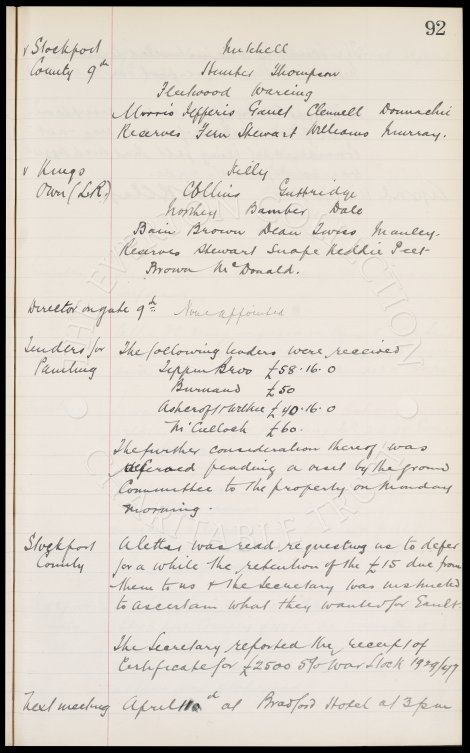 92
v Stockport Mitchell
County 9th Hunter Thompson
Fleetwood Wareing
Morris Jefferis Gault Clennell Donnachie
Reserves Fern Stewart Williams Murray.
v Kings Kelly
Own (L.R.) Collins Guttridge
Northey Bamber Dale
Bain Brown Dean Swiss Manley.
Reserves Stewart Snape Keddie Peet
Brown McDonald.
Director on gate 9th. None appointed
Tenders for The following tenders were received
Painting Tippin Bros £58.16.0
Burnand £50
Ashcroft £40.16.0
McCulloch £60.
The further consideration thereof was
deferred pending a visit by the Ground
Committee to the property on Monday
morning.
Stockport A letter was read requesting us to defer
County for a while the retention of the £15 due from
them to us & the Secretary was instructed
to ascertain what they wanted for Gault.
The Secretary reported the receipt of
Certificate for £2500 5% War Stock 1929/47
Next meeting April at Bradford Hotel at 3pm